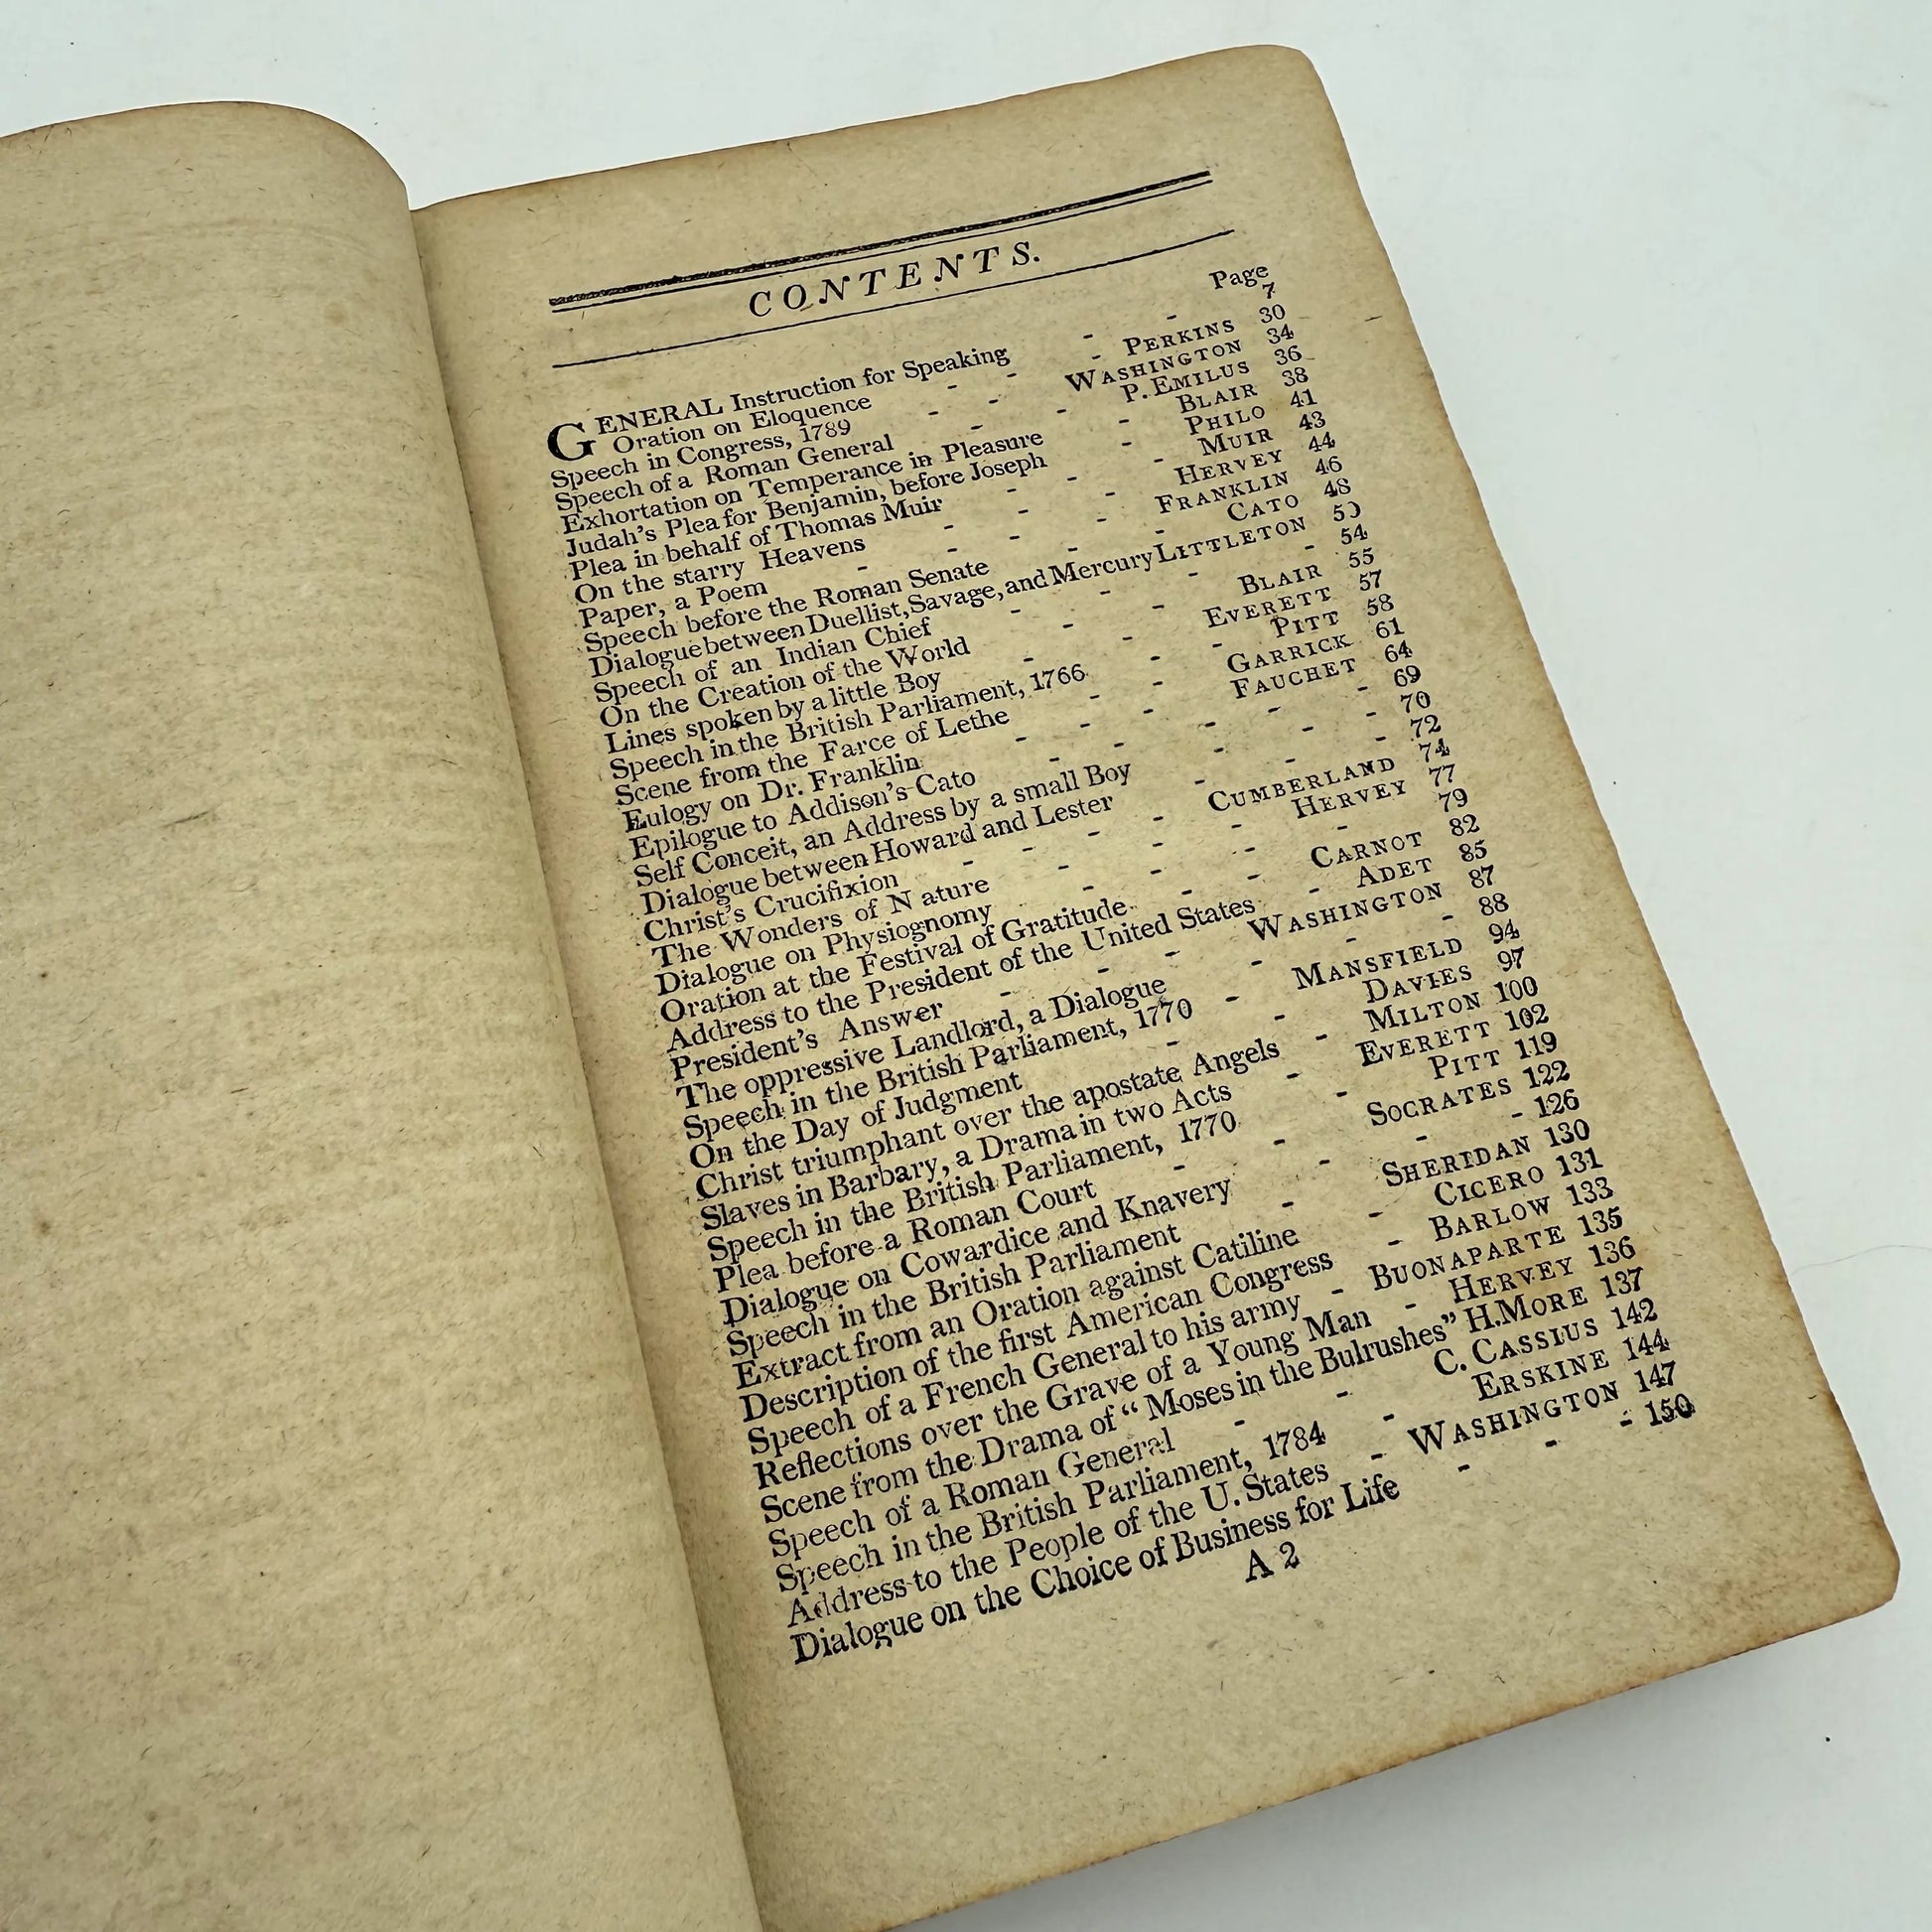 CONTENTS.
Page
GENERAL Instruction for Speaking - - 7
Oration on Eloquence - - - PERKINS 30
Speech in Congress, 1789 - - WASHINGTON 34
Speech of a Roman General - - P. EMILUS 36
Exhortation on Temperance in Pleasure - BLAIR 38
Judah's Plea for Benjamin, before Joseph - PHILO 41
Plea in behalf of Thomas Muir - - - MUIR 43
On the starry Heavens - - - HERVEY 44
Paper, a Poem - - - - FRANKLIN 46
Speech before the Roman Senate - - CATO 48
Dialogue between Duellist, Savage, and Mercury LITTLETON 50
Speech of an Indian Chief - - - - 54
On the Creation of the World - - BLAIR 55
Lines spoken by a little Boy - - EVERETT 57
Speech in the British Parliament, 1766 - - PITT 58
Scene from the Farce of Lethe - - GARRICK 61
Eulogy on Dr. Franklin - - - FAUCHET 64
Epilogue to Addison's Cato - - - - 69
Self Conceit, an Address by a small Boy - - - 70
Dialogue between Howard and Lester - - - 72
Christ's Crucifixion - - - - CUMBERLAND 74
The Wonders of Nature - - - HERVEY 77
Dialogue on Physiognomy - - - - 79
Oration at the Festival of Gratitude - - CARNOT 82
Address to the President of the United States - ADET 85
President's Answer - - - - WASHINGTON 87
The oppressive Landlord, a Dialogue - - - 88
Speech in the British Parliament, 1770 - MANSFIELD 94
On the Day of Judgment - - DAVIES 97
Christ triumphant over the apostate Angels - MILTON 100
Slaves in Barbary, a Drama in two Acts - EVERETT 102
Speech in the British Parliament, 1770 - PITT 119
Plea before a Roman Court - - SOCRATES 122
Dialogue on Cowardice and Knavery - - - 126
Speech in the British Parliament - SHERIDAN 130
Extract from an Oration against Catiline - CICERO 131
Description of the first American Congress - BARLOW 133
Speech of a French General to his army - BUONAPARTE 135
Reflections over the Grave of a Young Man - HERVEY 136
Scene from the Drama of "Moses in the Bulrushes" H.MORE 137
Speech of a Roman General - - C. CASSIUS 142
Speech in the British Parliament, 1784 - ERSKINE 144
Address to the People of the U. States - WASHINGTON 147
Dialogue on the Choice of Business for Life - - - 150
A 2